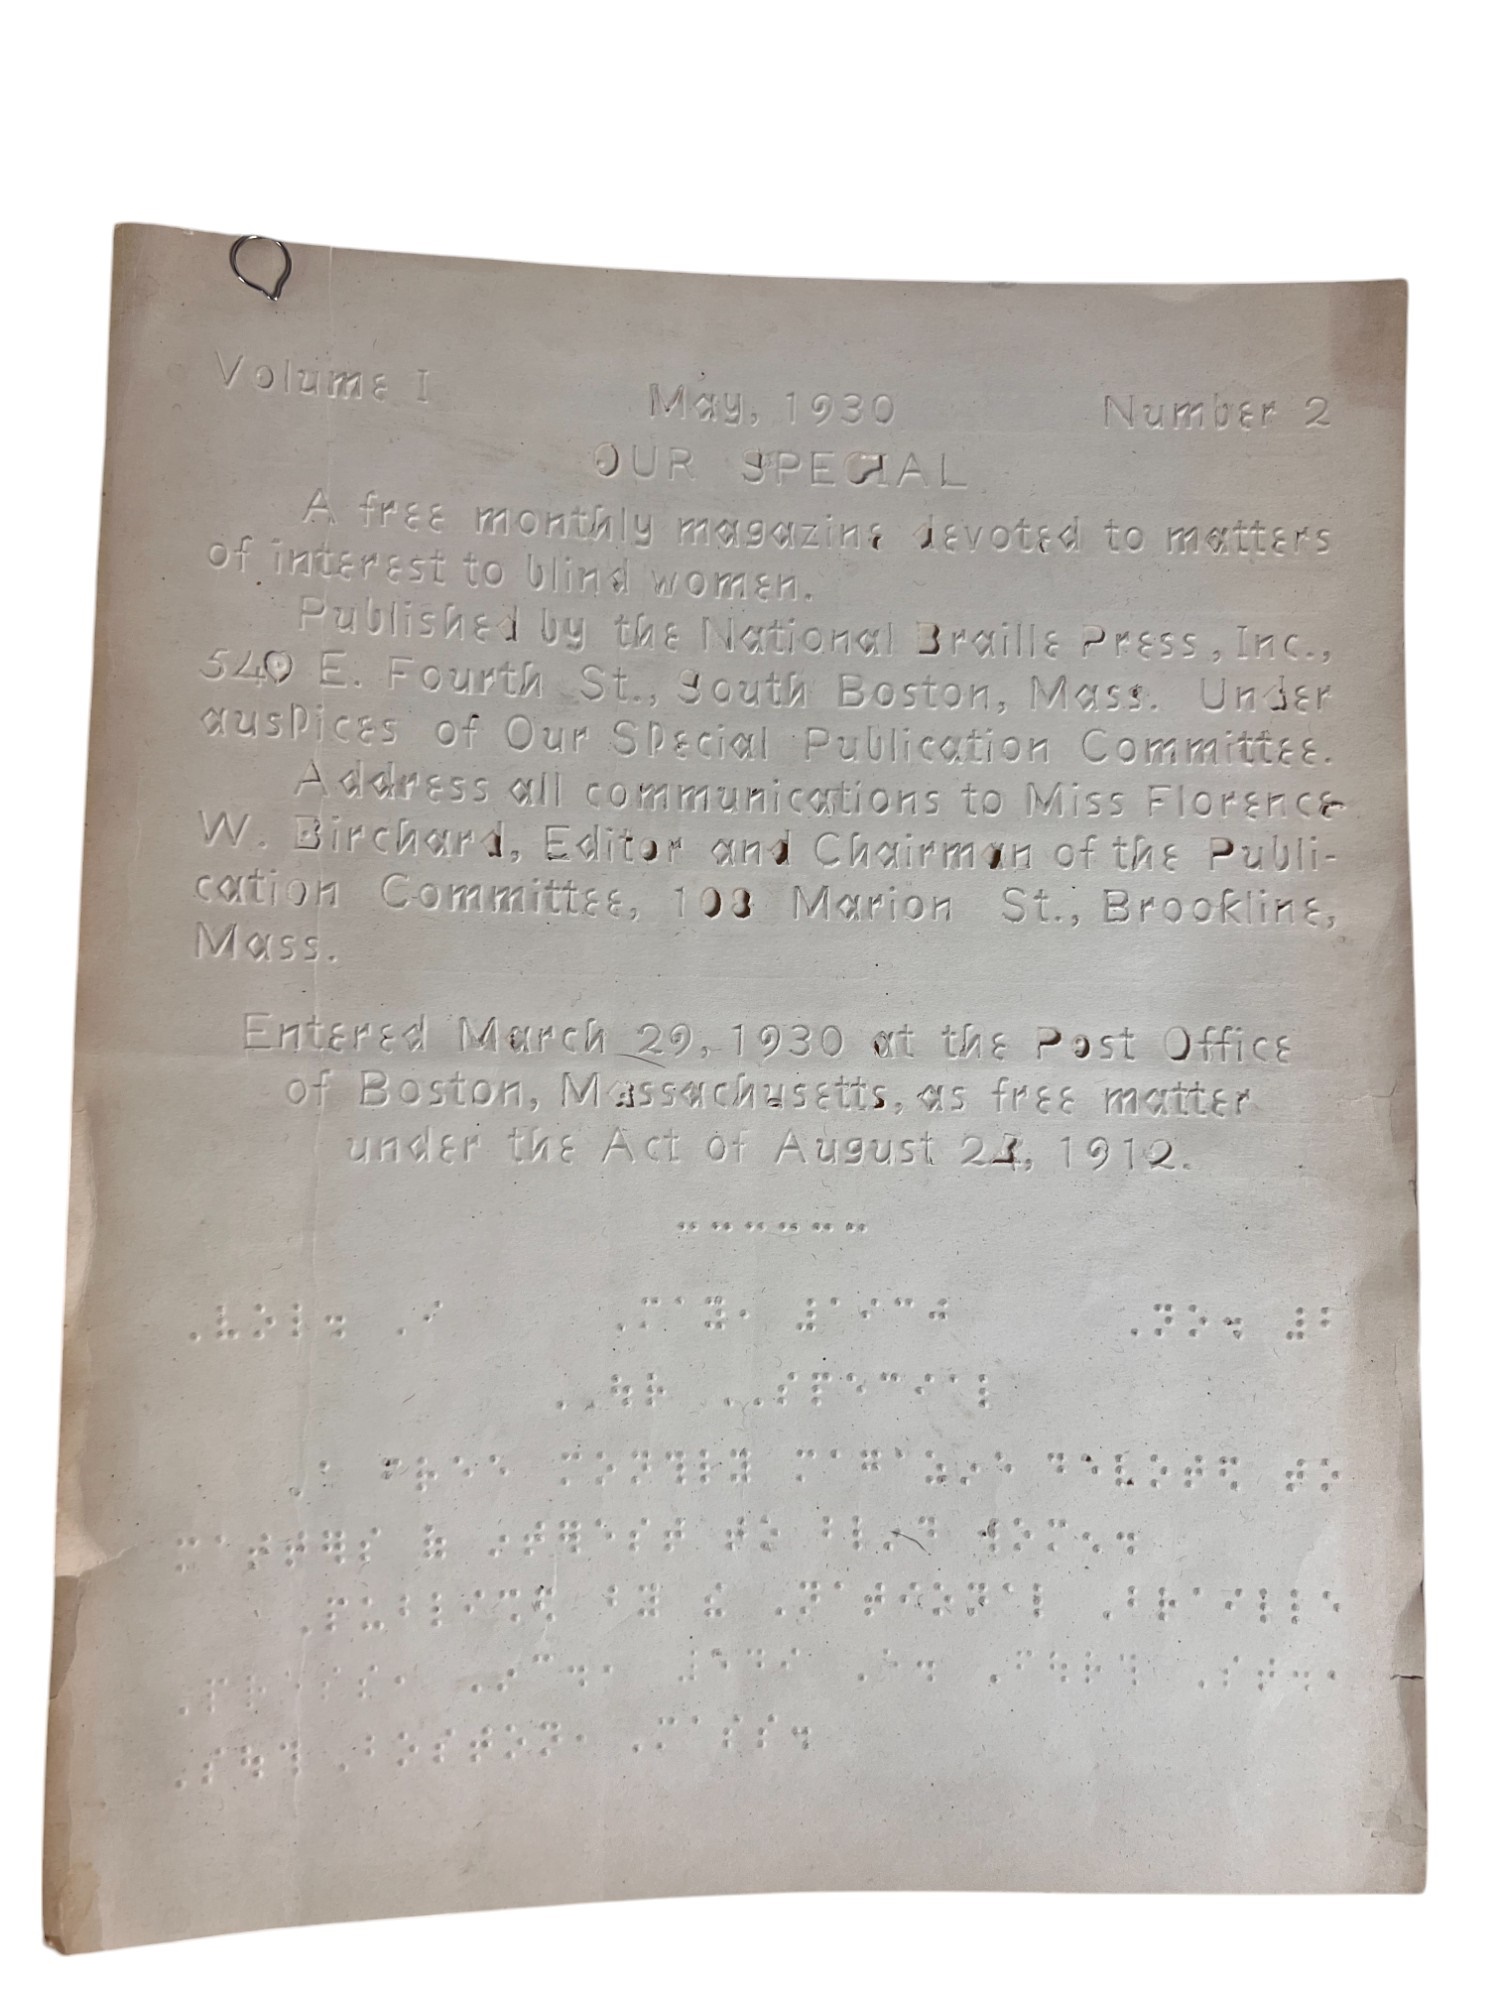 Volume I May, 1930 Number 2
OUR SPECIAL
A free monthly magazine devoted to matters
of interest to blind women.
Published by the National Braille Press, Inc.,
549 E. Fourth St., South Boston, Mass. Under
auspices of Our Special Publication Committee.
Address all communications to Miss Florence
W. Birchard, Editor and Chairman of the Publi-
cation Committee, 108 Marion St., Brookline,
Mass.
Entered March 29, 1930 at the Post Office
of Boston, Massachusetts, as free matter
under the Act of August 24, 1912.
⠠⠧⠕⠇⠲ ⠠⠊ ⠠⠍⠁⠽⠂ ⠼⠁⠊⠉⠚ ⠠⠝⠕⠲ ⠼⠃
⠠⠠⠳⠗ ⠠⠠⠎⠏⠑⠉⠊⠁⠇
⠠⠁ ⠋⠗⠑⠑ ⠍⠕⠝⠹⠇⠽ ⠍⠁⠛⠁⠵⠊⠝⠑ ⠙⠑⠧⠕⠞⠫ ⠞⠕
⠍⠁⠞⠞⠻⠎ ⠷ ⠔⠞⠻⠑⠎⠞ ⠞⠕ ⠃⠇⠔⠙ ⠺⠕⠍⠢⠲
⠠⠏⠥⠃⠇⠊⠩⠫ ⠃⠽ ⠮ ⠠⠝⠁⠞⠊⠕⠝⠁⠇ ⠠⠃⠗⠁⠊⠇⠇⠑
⠠⠏⠗⠑⠎⠎⠂ ⠠⠔⠉⠲⠂ ⠠⠑⠲ ⠠⠋⠳⠗⠹ ⠠⠎⠞⠲⠂
⠠⠎⠳⠹ ⠠⠃⠕⠎⠞⠕⠝⠂ ⠠⠍⠁⠎⠎⠲